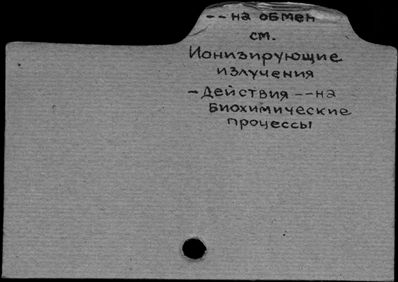 -- на обмен
см.
Ионизирующие
излучения
- Действия -- на
Биохимические
процессы